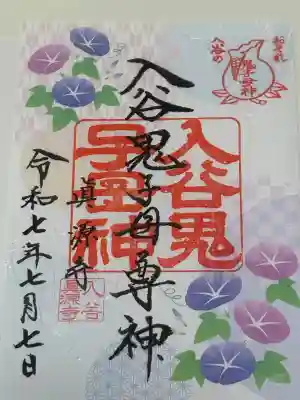 おそれ
入谷の
鬼子母神
入谷鬼子母尊神
入谷鬼
子母神
真源寺
入谷
真源寺
令和七年七月七日